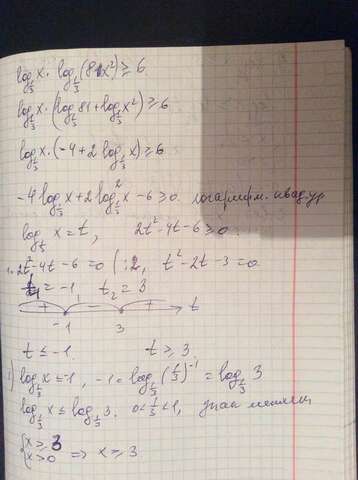 log_{1/3} x · log_{1/3} (81x²) ≥ 6
log_{1/3} x · (log_{1/3} 81 + log_{1/3} x²) ≥ 6
log_{1/3} x · (-4 + 2 log_{1/3} x) ≥ 6
-4 log_{1/3} x + 2 log²_{1/3} x - 6 ≥ 0. логарифм. квадр
log_{1/3} x = t, 2t² - 4t - 6 ≥ 0
2t² - 4t - 6 = 0 (:2, t² - 2t - 3 = 0
t₁ = -1 t₂ = 3
+ - + t
-1 3
t ≤ -1. t ≥ 3
1) log_{1/3} x ≤ -1, -1 = log_{1/3} (1/3)^{-1} = log_{1/3} 3
log_{1/3} x ≤ log_{1/3} 3. 0 < 1/3 < 1, знак меняем
{x ≥ 3
{x > 0 ⇒ x ≥ 3